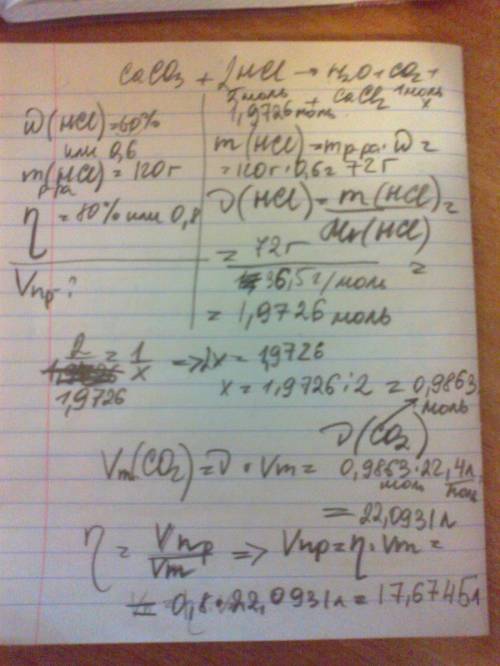 CaCO₃ + 2HCl → H₂O + CO₂ +
2 моль 1 моль
1,9726 моль + CaCl₂ x
ω(HCl) = 60%
или 0,6
m(HCl) = 120 г
р-ра
η = 80% или 0,8
Vпр ?
m(HCl) = mр-ра · ω =
= 120 г · 0,6 = 72 г
ν(HCl) = m(HCl) / Mr(HCl) =
= 72 г / 36,5 г/моль =
= 1,9726 моль
2 / 1,9726 = 1 / x ⇒ 2x = 1,9726
x = 1,9726 : 2 = 0,9863
моль
ν(CO₂)
Vm(CO₂) = ν · Vm = 0,9863 моль · 22,4 л/моль
= 22,0931 л
η = Vпр / Vm ⇒ Vпр = η · Vm =
= 0,8 · 22,0931 л = 17,6745 л